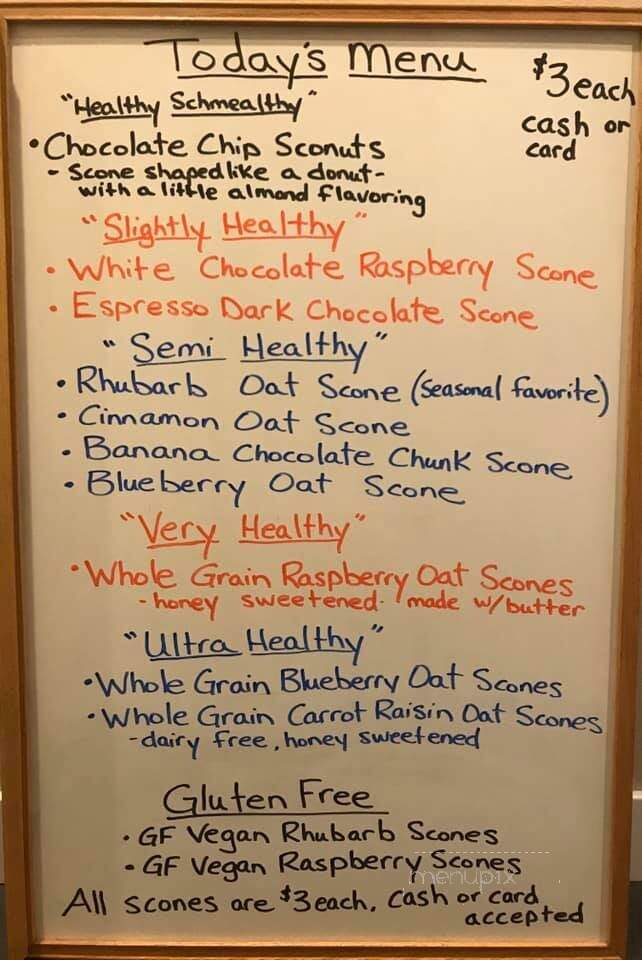 Today's Menu
$3 each
cash or
card
"Healthy Schmealthy"
• Chocolate Chip Sconuts
- Scone shaped like a donut-
with a little almond flavoring
"Slightly Healthy"
• White Chocolate Raspberry Scone
• Espresso Dark Chocolate Scone
"Semi Healthy"
• Rhubarb Oat Scone (seasonal favorite)
• Cinnamon Oat Scone
• Banana Chocolate Chunk Scone
• Blueberry Oat Scone
"Very Healthy"
• Whole Grain Raspberry Oat Scones
- honey sweetened- made w/butter
"Ultra Healthy"
• Whole Grain Blueberry Oat Scones
• Whole Grain Carrot Raisin Oat Scones
- dairy free, honey sweetened
Gluten Free
• GF Vegan Rhubarb Scones
• GF Vegan Raspberry Scones
menupix
All scones are $3 each, cash or card
accepted